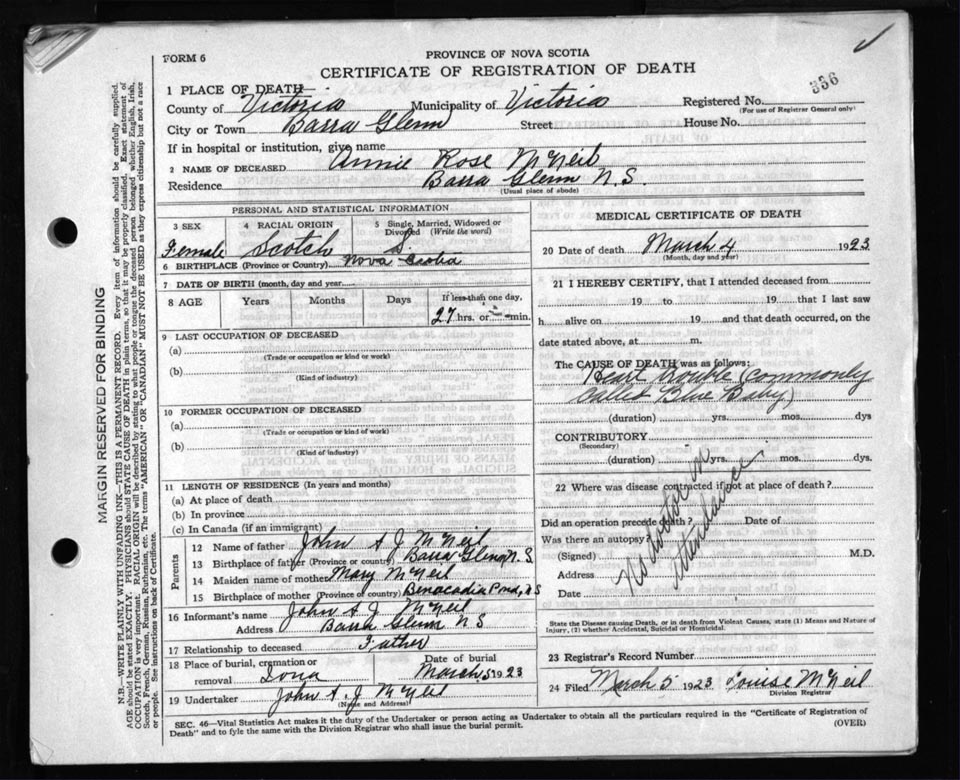 FORM 6
PROVINCE OF NOVA SCOTIA
CERTIFICATE OF REGISTRATION OF DEATH
336
1 PLACE OF DEATH
County of Victoria Municipality of Victoria Registered No.
(For use of Registrar General only)
City or Town Barra Glenn Street House No.
If in hospital or institution, give name
2 NAME OF DECEASED Annie Rose McNeil
Residence Barra Glenn N.S.
(Usual place of abode)
PERSONAL AND STATISTICAL INFORMATION
3 SEX 4 RACIAL ORIGIN 5 Single, Married, Widowed or Divorced (Write the word)
Female Scotch S.
6 BIRTHPLACE (Province or Country) Nova Scotia
7 DATE OF BIRTH (month, day and year)
8 AGE Years Months Days If less than one day,
27 hrs. or min.
9 LAST OCCUPATION OF DECEASED
(a)
(Trade or occupation or kind or work)
(b)
(Kind of industry)
10 FORMER OCCUPATION OF DECEASED
(a)
(Trade or occupation or kind or work)
(b)
(Kind of industry)
11 LENGTH OF RESIDENCE (In years and months)
(a) At place of death
(b) In province
(c) In Canada (if an immigrant)
Parents
12 Name of father John A J McNeil
13 Birthplace of father (Province or country) Barra Glenn N.S.
14 Maiden name of mother Mary McNeil
15 Birthplace of mother (Province or country) Benacadia Pond, N S
16 Informant's name John A J McNeil
Address Barra Glenn N S
17 Relationship to deceased Father
18 Place of burial, cremation or removal Iona Date of burial March 5 1923
19 Undertaker John A. J McNeil
(Name and Address)
MEDICAL CERTIFICATE OF DEATH
20 Date of death March 4 1923
(Month, day and year)
21 I HEREBY CERTIFY, that I attended deceased from
19 to 19 that I last saw
h alive on 19 and that death occurred, on the
date stated above, at m.
The CAUSE OF DEATH was as follows:
Heart trouble commonly
called Blue Baby)
(duration) yrs. mos. dys
CONTRIBUTORY
(Secondary)
(duration) yrs. mos. dys.
22 Where was disease contracted if not at place of death?
Did an operation precede death? Date of
Was there an autopsy?
(Signed) M.D.
Address
Date
No doctor in
attendance
State the Disease causing Death, or in death from Violent Causes, state (1) Means and Nature of
Injury, (2) whether Accidental, Suicidal or Homicidal.
23 Registrar's Record Number
24 Filed March 5 1923 Louise McNeil
Division Registrar
SEC. 46—Vital Statistics Act makes it the duty of the Undertaker or person acting as Undertaker to obtain all the particulars required in the "Certificate of Registration of
Death" and to fyle the same with the Division Registrar who shall issue the burial permit. (OVER)
MARGIN RESERVED FOR BINDING
N.B.—WRITE PLAINLY WITH UNFADING INK—THIS IS A PERMANENT RECORD. Every item of information should be carefully supplied.
AGE should be stated EXACTLY. PHYSICIANS should STATE CAUSE OF DEATH in plain terms, so that it may be properly classified. Exact statement of
OCCUPATION is very important. RACIAL ORIGIN will be described by stating to what people or tongue the deceased person belonged whether English, Irish,
Scotch, French, German, Russian, Ruthenian, etc. The terms "AMERICAN" or "CANADIAN" MUST NOT BE USED as they express citizenship but not a race
or people. See instructions on back of Certificate.